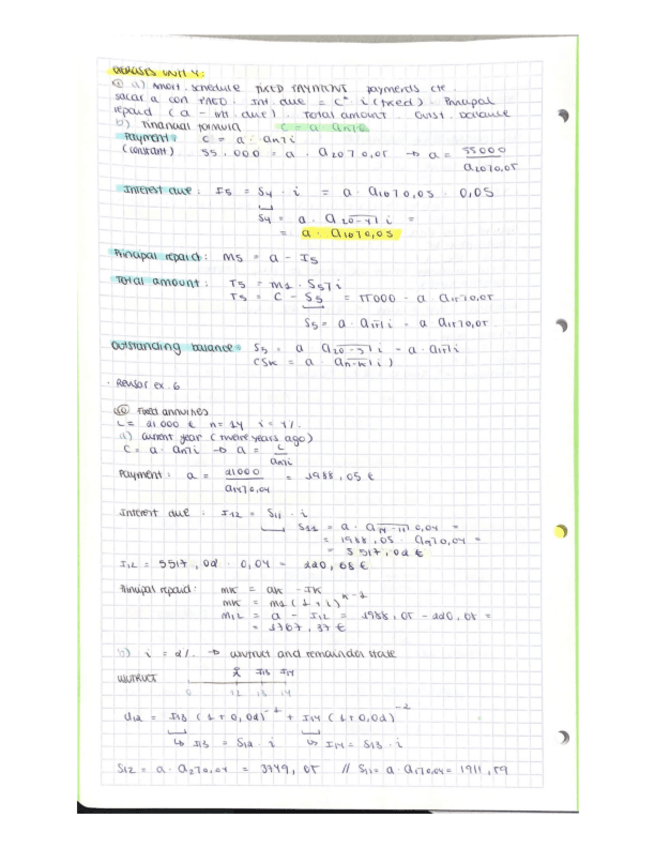 EXERCISES UNIT 4:
a) Amort. schedule FIXED PAYMENT payments cte.
sacar a con PMED. Int. due = C · i (fixed). Principal
repaid (a - int. due). Total amount. Outst. balance
b) Financial formula C = a · an⌉i
Payment: C = a · an⌉i
(constant) 55.000 = a · a20⌉0,05 → a = 55000 / a20⌉0,05
Interest due: I5 = S4 · i = a · a16⌉0,05 · 0,05
S4 = a · a20-4⌉i =
= a · a16⌉0,05
Principal repaid: M5 = a - I5
Total amount: T5 = m1 · S5⌉i
T5 = C - S5 = 55000 - a · a15⌉0,05
S5 = a · a15⌉i = a a15⌉0,05
Outstanding balance = S5 = a a20-5⌉i = a · a15⌉i
(Sk = a · an-k⌉i)
· Revisar ex. 6
Fixed annuities
C = 21000 € n = 14 i = 4%.
a) current year (twelve years ago)
C = a · an⌉i → a = C / an⌉i
Payment: a = 21000 / a14⌉0,04 = 1988,05 €
Interest due: I12 = S11 · i
S11 = a · a14-11⌉0,04 =
= 1988,05 · a3⌉0,04 =
= 5517,02 €
I12 = 5517,02 · 0,04 = 220,68 €
Principal repaid: mk = ak - Ik
mk = m1 (1+i)^k-1
m12 = a - I12 = 1988,05 - 220,68 =
= 1767,37 €
b) i = 2%. → usufruct and remainder state
USUFRUCT I13 I14
0 12 13 14
U12 = I13 (1+0,02)^-1 + I14 (1+0,02)^-2
↳ I13 = S12 · i ↳ I14 = S13 · i
S12 = a · a2⌉0,04 = 3749,05 // S13 = a · a1⌉0,04 = 1911,59